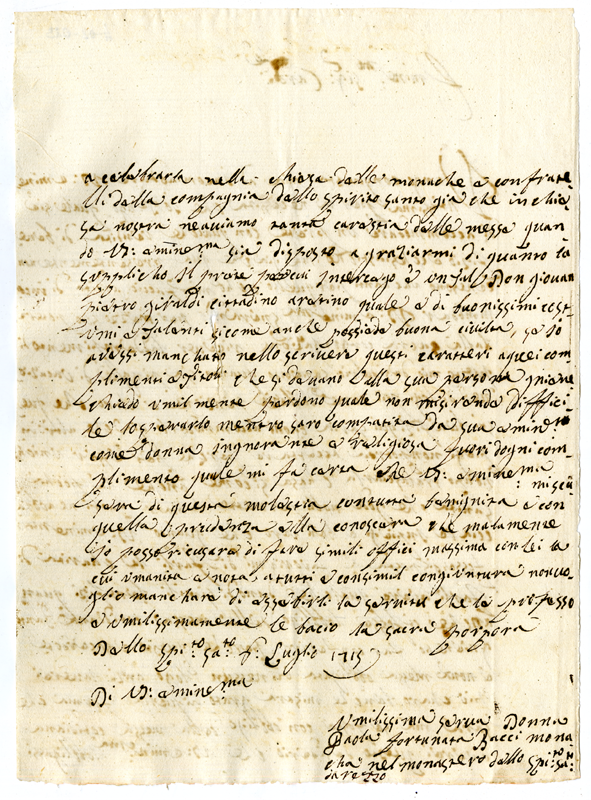 a celebrarla nella chiesa delle monache e confrate-
lli della compagnia dello spirito santo già che in chie-
sa nostra neaviamo tanta carestia delle messe quan-
do V: eminema sia disposto a graziarmi di quanto la
supplicho Il prete per cui intercego è un tal Don giovan
pietro giraldi cittadino aretino quale è di buonissimi cost-
umi e talenti sicome anche possiede buona civilta, se Io
avessi manchato nello scrivere questi caratteri a quei com-
plimenti e titoli che si devano alla sua persona gniene
chiedo umilmente perdono quale non mi sirende diffici-
le lo sperarlo mentre saro compatita da sua eminza
come donna ingnorante e religiosa fuori dogni com-
plimento quale mi fa certa che V: eminema
miscu-
sera di questa molestia con tutta benignita e con
quella prudenza ella conoscera che malamente
Io posso ricusare di fare simili offici massime con lei la
cui umanita è nota a tutti e consimil congiuntura non vo-
glio manchare di esebirli la servitu che le professo
e umilissimamente le bacio la sacra porpora
Dallo Spito: sato: 6: Luglio 1715
Di V: eminema
Umilissima serva Donna
Paola fortunata Bacci mona
cha nel monastero dello spito: sato:
darezzo